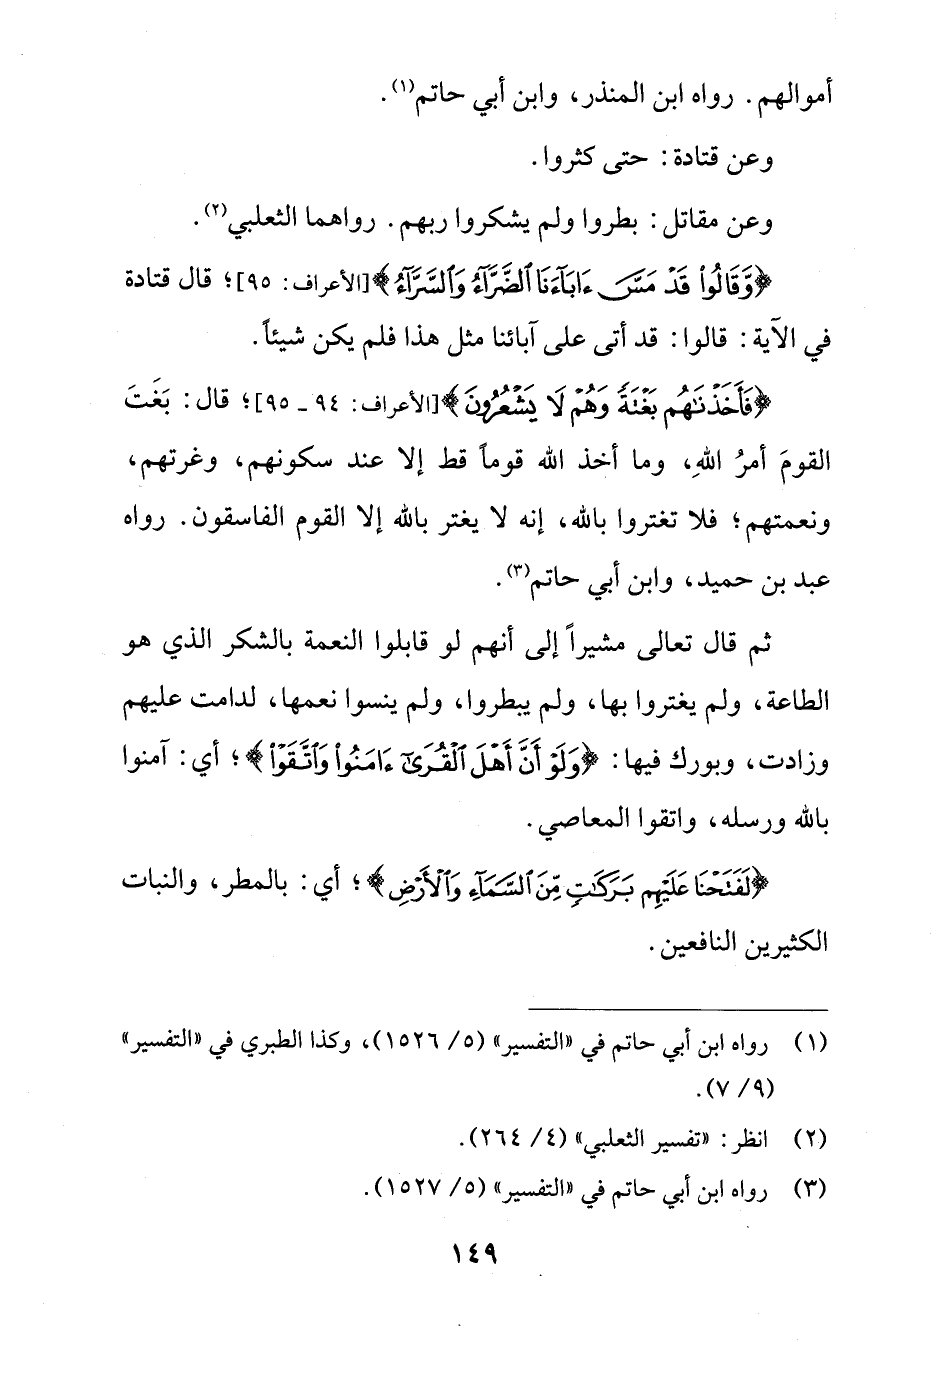 أموالهم. رواه ابن المنذر، وابن أبي حاتم(١).
وعن قتادة: حتى كثروا.
وعن مقاتل: بطروا ولم يشكروا ربهم. رواهما الثعلبي(٢).
﴿وَّقَالُوا۟ قَدْ مَسَّ ءَابَآءَنَا ٱلضَّرَّآءُ وَٱلسَّرَّآءُ﴾ [الأعراف: ٩٥]؛ قال قتادة
في الآية: قالوا: قد أتى على آبائنا مثل هذا فلم يكن شيئاً.
﴿فَأَخَذْنَٰهُم بَغْتَةً وَهُمْ لَا يَشْعُرُونَ﴾ [الأعراف: ٩٤ ـ ٩٥]؛ قال: بَغَتَ
القومَ أمرُ اللهِ، وما أخذ الله قوماً قط إلا عند سكونهم، وغرتهم،
ونعمتهم؛ فلا تغتروا بالله، إنه لا يغتر بالله إلا القوم الفاسقون. رواه
عبد بن حميد، وابن أبي حاتم(٣).
ثم قال تعالى مشيراً إلى أنهم لو قابلوا النعمة بالشكر الذي هو
الطاعة، ولم يغتروا بها، ولم يبطروا، ولم ينسوا نعمها، لدامت عليهم
وزادت، وبورك فيها: ﴿وَلَوْ أَنَّ أَهْلَ ٱلْقُرَىٰٓ ءَامَنُوا۟ وَٱتَّقَوْا۟﴾؛ أي: آمنوا
بالله ورسله، واتقوا المعاصي.
﴿لَفَتَحْنَا عَلَيْهِم بَرَكَٰتٍ مِّنَ ٱلسَّمَآءِ وَٱلْأَرْضِ﴾؛ أي: بالمطر، والنبات
الكثيرين النافعين.
(١) رواه ابن أبي حاتم في «التفسير» (٥/ ١٥٢٦)، وكذا الطبري في «التفسير»
(٩/ ٧).
(٢) انظر: «تفسير الثعلبي» (٤/ ٢٦٤).
(٣) رواه ابن أبي حاتم في «التفسير» (٥/ ١٥٢٧).
١٤٩